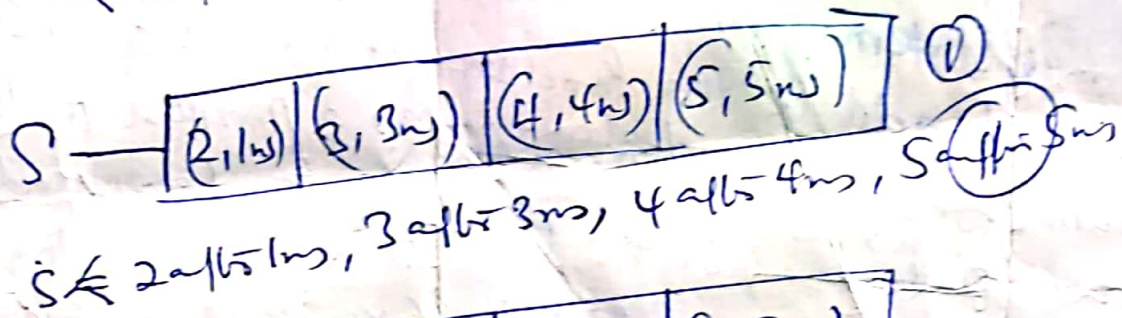 S (2,1ns) (3, 3ns) (4, 4ns) (5, 5ns) ①
S <= 2 after 1ns, 3 after 3ns, 4 after 4ns, 5 after 5ns